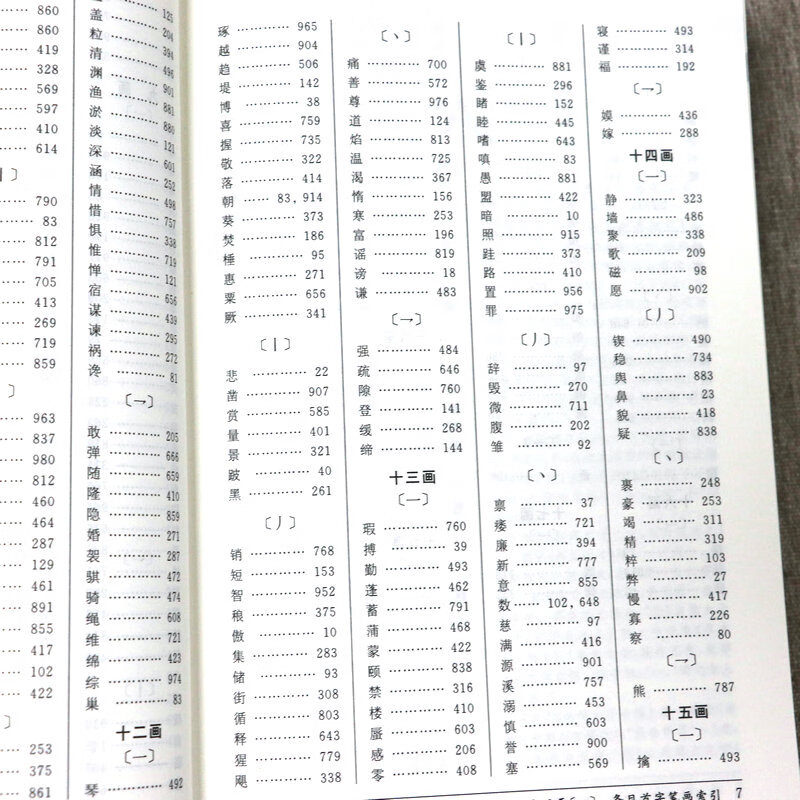 860
860
419
328
569
597
410
614
790
83
812
791
705
413
269
719
859
963
837
980
812
460
464
287
129
461
891
855
417
102
422
253
375
861
盖 125
粒 204
清 394
渊 490
渔 901
淤 881
淡 880
深 121
涵 601
情 252
惜 498
惧 757
惟 338
惮 719
宿 121
谋 656
谏 439
祸 295
谗 272
81
〔一〕
敢 205
弹 666
随 659
隆 410
隐 859
婚 271
袈 287
骐 472
骑 474
绳 608
维 721
绵 423
综 974
巢 83
十二画
〔一〕
琴 492
琢 965
越 904
趋 506
堤 142
博 38
喜 759
握 735
敬 322
落 414
朝 83,914
葵 373
焚 186
棰 95
惠 271
粟 656
厥 341
〔丨〕
悲 22
凿 907
赏 585
量 401
景 321
跛 40
黑 261
〔丿〕
销 768
短 153
智 952
稂 375
傲 10
集 283
储 93
街 308
循 803
释 643
猩 779
飓 338
〔丶〕
痛 700
善 572
尊 976
道 124
焰 813
温 725
渴 367
惰 156
寒 253
富 196
谣 819
谤 18
谦 483
〔一〕
强 484
疏 646
隙 760
登 141
缓 268
缔 144
十三画
〔一〕
瑕 760
搏 39
勤 493
蓬 462
蓄 791
蒲 468
蒙 422
颐 838
禁 316
楼 410
蜃 603
感 206
零 408
〔丨〕
虞 881
鉴 296
睹 152
睦 445
嗜 643
嗔 83
愚 881
盟 422
暗 10
照 915
跬 373
路 410
置 956
罪 975
〔丿〕
辞 97
毁 270
微 711
腹 202
雏 92
〔丶〕
禀 37
痿 721
廉 394
新 777
意 855
数 102,648
慈 97
满 416
源 901
溪 757
溺 453
慎 603
誉 900
塞 569
寝 493
谨 314
福 192
〔一〕
嫫 436
嫁 288
十四画
〔一〕
静 323
墙 486
聚 338
歌 209
磁 98
愿 902
〔丿〕
锲 490
稳 734
舆 883
鼻 23
貌 418
疑 838
〔丶〕
裹 248
豪 253
竭 311
精 319
粹 103
弊 27
慢 417
寡 226
察 80
〔一〕
熊 787
十五画
〔一〕
擒 493
条目首字笔画索引 7